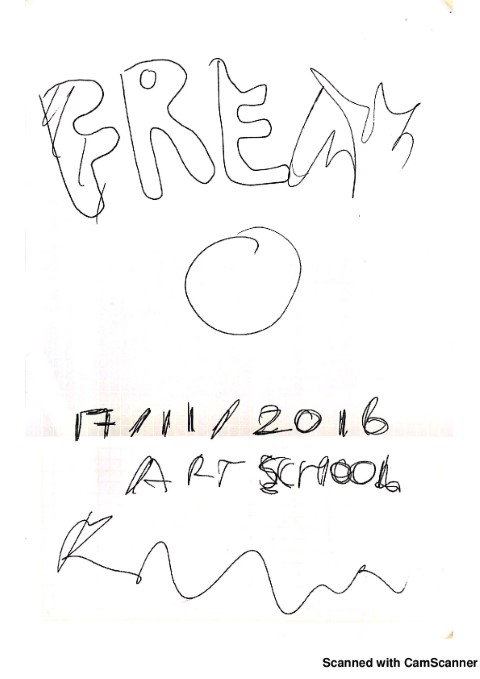 FREAM
17/11/2016
ART SCHOOL
Scanned with CamScanner